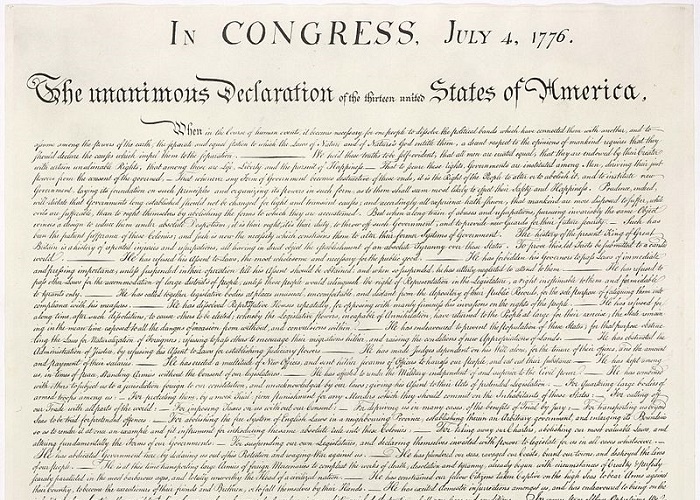 In CONGRESS, July 4, 1776.
The unanimous Declaration of the thirteen united States of America,
When in the Course of human events, it becomes necessary for one people to dissolve the political bands which have connected them with another, and to
assume among the powers of the earth, the separate and equal station to which the Laws of Nature and of Nature's God entitle them, a decent respect to the opinions of mankind requires that they
should declare the causes which impel them to the separation. — We hold these truths to be self-evident, that all men are created equal, that they are endowed by their Creator
with certain unalienable Rights, that among these are Life, Liberty and the pursuit of Happiness. — That to secure these rights, Governments are instituted among Men, deriving their just
powers from the consent of the governed, — That whenever any Form of Government becomes destructive of these ends, it is the Right of the People to alter or to abolish it, and to institute new
Government, laying its foundation on such principles and organizing its powers in such form, as to them shall seem most likely to effect their Safety and Happiness. Prudence, indeed,
will dictate that Governments long established should not be changed for light and transient causes; and accordingly all experience hath shewn, that mankind are more disposed to suffer, while
evils are sufferable, than to right themselves by abolishing the forms to which they are accustomed. But when a long train of abuses and usurpations, pursuing invariably the same Object
evinces a design to reduce them under absolute Despotism, it is their right, it is their duty, to throw off such Government, and to provide new Guards for their future security. — Such has
been the patient sufferance of these Colonies; and such is now the necessity which constrains them to alter their former Systems of Government. The history of the present King of Great
Britain is a history of repeated injuries and usurpations, all having in direct object the establishment of an absolute Tyranny over these States. To prove this, let Facts be submitted to a candid
world. — He has refused his Assent to Laws, the most wholesome and necessary for the public good. — He has forbidden his Governors to pass Laws of immediate
and pressing importance, unless suspended in their operation till his Assent should be obtained; and when so suspended, he has utterly neglected to attend to them. — He has refused to
pass other Laws for the accommodation of large districts of people, unless those people would relinquish the right of Representation in the Legislature, a right inestimable to them and formidable
to tyrants only. — He has called together legislative bodies at places unusual, uncomfortable, and distant from the depository of their Public Records, for the sole purpose of fatiguing them into
compliance with his measures. — He has dissolved Representative Houses repeatedly, for opposing with manly firmness his invasions on the rights of the people. — He has refused for
a long time, after such dissolutions, to cause others to be elected; whereby the Legislative powers, incapable of Annihilation, have returned to the People at large for their exercise; the State remain-
ing in the mean time exposed to all the dangers of invasion from without, and convulsions within. — He has endeavoured to prevent the population of these States; for that purpose obstruc-
ting the Laws for Naturalization of Foreigners; refusing to pass others to encourage their migrations hither, and raising the conditions of new Appropriations of Lands. — He has obstructed the
Administration of Justice, by refusing his Assent to Laws for establishing Judiciary powers. — He has made Judges dependent on his Will alone, for the tenure of their offices, and the amount
and payment of their salaries. — He has erected a multitude of New Offices, and sent hither swarms of Officers to harrass our people, and eat out their substance. — He has kept among
us, in times of peace, Standing Armies without the Consent of our legislatures. — He has affected to render the Military independent of and superior to the Civil power. — He has combined
with others to subject us to a jurisdiction foreign to our constitution, and unacknowledged by our laws; giving his Assent to their Acts of pretended Legislation: — For Quartering large bodies of
armed troops among us: — For protecting them, by a mock Trial, from punishment for any Murders which they should commit on the Inhabitants of these States: — For cutting off
our Trade with all parts of the world: — For imposing Taxes on us without our Consent: — For depriving us in many cases, of the benefits of Trial by Jury: — For transporting us beyond
Seas to be tried for pretended offences — For abolishing the free System of English Laws in a neighbouring Province, establishing therein an Arbitrary government, and enlarging its Boundaries
so as to render it at once an example and fit instrument for introducing the same absolute rule into these Colonies: — For taking away our Charters, abolishing our most valuable Laws, and
altering fundamentally the Forms of our Governments: — For suspending our own Legislatures, and declaring themselves invested with power to legislate for us in all cases whatsoever. —
He has abdicated Government here, by declaring us out of his Protection and waging War against us. — He has plundered our seas, ravaged our Coasts, burnt our towns, and destroyed the lives
of our people. — He is at this time transporting large Armies of foreign Mercenaries to compleat the works of death, desolation and tyranny, already begun with circumstances of Cruelty & perfidy
scarcely paralleled in the most barbarous ages, and totally unworthy the Head of a civilized nation. — He has constrained our fellow Citizens taken Captive on the high Seas to bear Arms against
their Country, to become the executioners of their friends and Brethren, or to fall themselves by their Hands. — He has excited domestic insurrections amongst us, and has endeavoured to bring on the